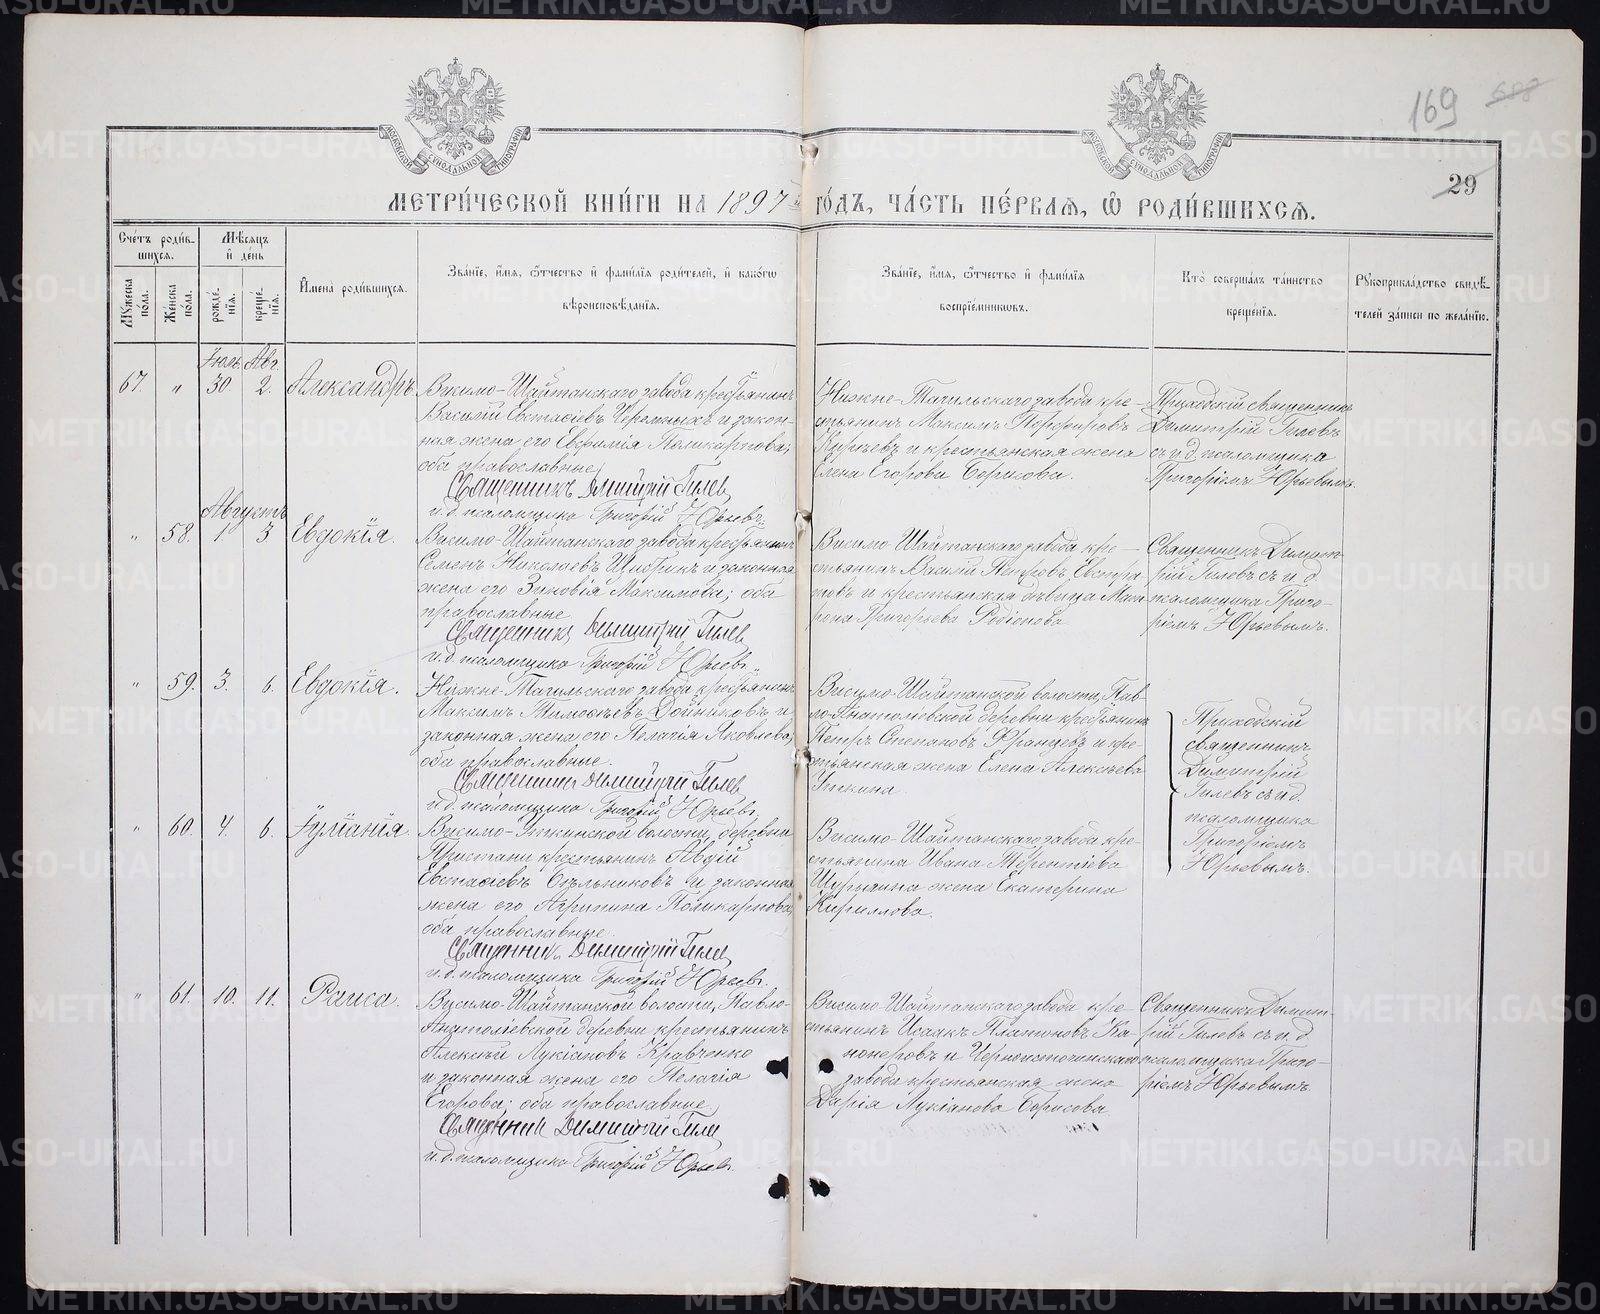 169
29
МЕТРИ́ЧЕСКОЙ КНИ́ГИ НА 1897 й ГО́ДЪ, ЧА́СТЬ ПЕ́РВАЯ, Ѡ҆ РОДИ́ВШИХСЯ.
Сче́тъ роди́в-
шихся.
Мѣ́сяцъ
и҆ де́нь
Му́жеска
по́ла.
Же́нска
по́ла.
рожде́-
нїя.
креще́-
нїя.
И҆мена̀ роди́вшихся.
Зва́нїе, и҆́мя, ѻ҆́тчество и҆ фами́лїя роди́телей, и҆ како́гѡ
вѣроисповѣ́данїя.
Зва́нїе, и҆́мя, ѻ҆́тчество и҆ фами́лїя
воспрїе́мниковъ.
Кто̀ соверша́лъ та́инство
креще́нїя.
Рꙋкоприкла́дство свидѣ́-
телей за́писи по жела́нїю.
Іюль. Авг.
67. " 30 2. Александръ.
Висимо-Шайтанскаго завода крестьянинъ
Василій Евстафіевъ Черемныхъ и закон-
ная жена его Евфимія Поликарпова;
оба православные
Священникъ Димитрій Гилев
и.д. псаломщика Григорій Юрьевъ.
Нижне-Тагильскаго завода кре-
стьянинъ Максимъ Порфировъ
и крестьянская жена
Елена Егорова Борисова.
Приходскій священникъ
Димитрій Гилевъ
съ и.д. псаломщика
Григоріемъ Юрьевымъ.
Августъ
" 58. 1. 3 Евдокія.
Висимо-Шайтанскаго завода крестьянинъ
Семенъ Николаевъ и законная
жена его Зиновія Максимова; оба
православные
Священникъ Димитрій Гилев
и.д. псаломщика Григорій Юрьевъ.
Висимо-Шайтанскаго завода кре-
стьянинъ Василій Петровъ Евстра-
товъ и крестьянская дѣвица Мат-
рона Григорьева Родіонова
Священникъ Димит-
рій Гилевъ съ и.д.
псаломщика Григо-
ріемъ Юрьевымъ.
" 59. 3. 6. Евдокія.
Нижне-Тагильскаго завода крестьянинъ
Максимъ Тимофѣевъ Дойниковъ и
законная жена его Пелагія Яковлева;
оба православные.
Священникъ Димитрій Гилев
и.д. псаломщика Григорій Юрьевъ.
Висимо-Шайтанской волости, Пав-
ло-Анатоліевской деревни крестьянинъ
Петръ Степановъ Францевъ и кре-
стьянская жена Елена Алексѣева
Уткина.
Приходскій
священникъ
Димитрій
Гилевъ съ и.д.
псаломщика
Григоріемъ
Юрьевымъ.
" 60. 4. 6. Іуліанія.
Висимо-Уткинской волости, деревни
Пристани крестьянинъ Авдій
Евстафіевъ и законная
жена его Агрипина Поликарпова,
оба православные.
Священник Димитрій Гилев
и.д. псаломщика Григорій Юрьевъ.
Висимо-Шайтанскаго завода кре-
стьянина Ивана Терентіева
жена Екатерина
Кириллова.
" 61. 10. 11. Раиса.
Висимо-Шайтанской волости, Павло-
Анатоліевской деревни крестьянинъ
Алексѣй Лукіановъ Кравченко
и законная жена его Пелагія
Егорова; оба православные.
Священник Димитрій Гилев
и.д. псаломщика Григорій Юрьевъ.
Висимо-Шайтанскаго завода кре-
стьянинъ Исаакъ Платоновъ Ка-
нонеровъ и Черноисточинскаго
завода крестьянская жена
Дарія Лукіанова Борисова.
Священникъ Димит-
рій Гилевъ съ и.д.
псаломщика Григо-
ріемъ Юрьевымъ.
METRIKI.GASO-URAL.RU